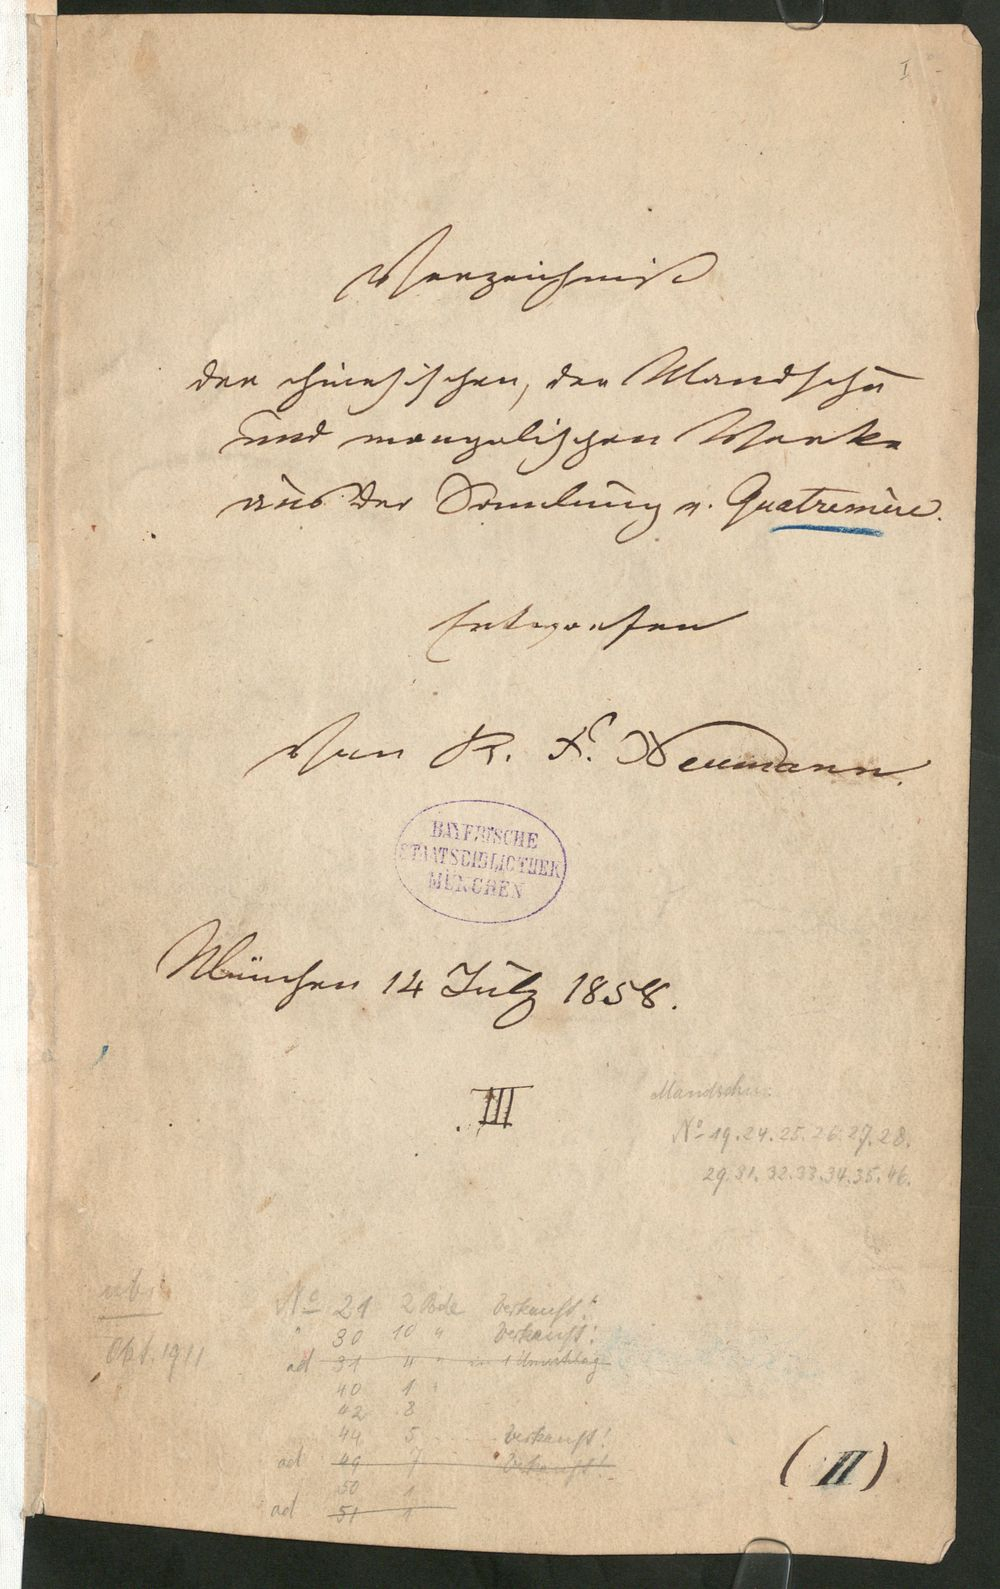 I
Verzeichniß
der chinesischen, der Mandschu
und mongolischen Werke
aus der Samlung v. Quatremère.
Entworfen
Von K. F. Neumann.
BAYERISCHE
STAATSBIBLIOTHEK
MÜNCHEN
München 14 July 1858.
III
Mandschu:
No 19.24.25.26.27.28.
29.31.32.33.34.35.46.
Okt. 1911
No 21 2 Bde Verkauft!
" 30 10 " Verkauft!
ad 31 4 " in 1 Umschlag
40 1 "
42 3
44 5 Verkauft!
ad 49 7 Verkauft!
50 1
ad 51 1
(II)